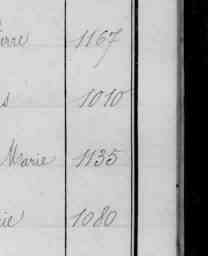 ierre 1167
s 1010
Marie 1135
ie 1080